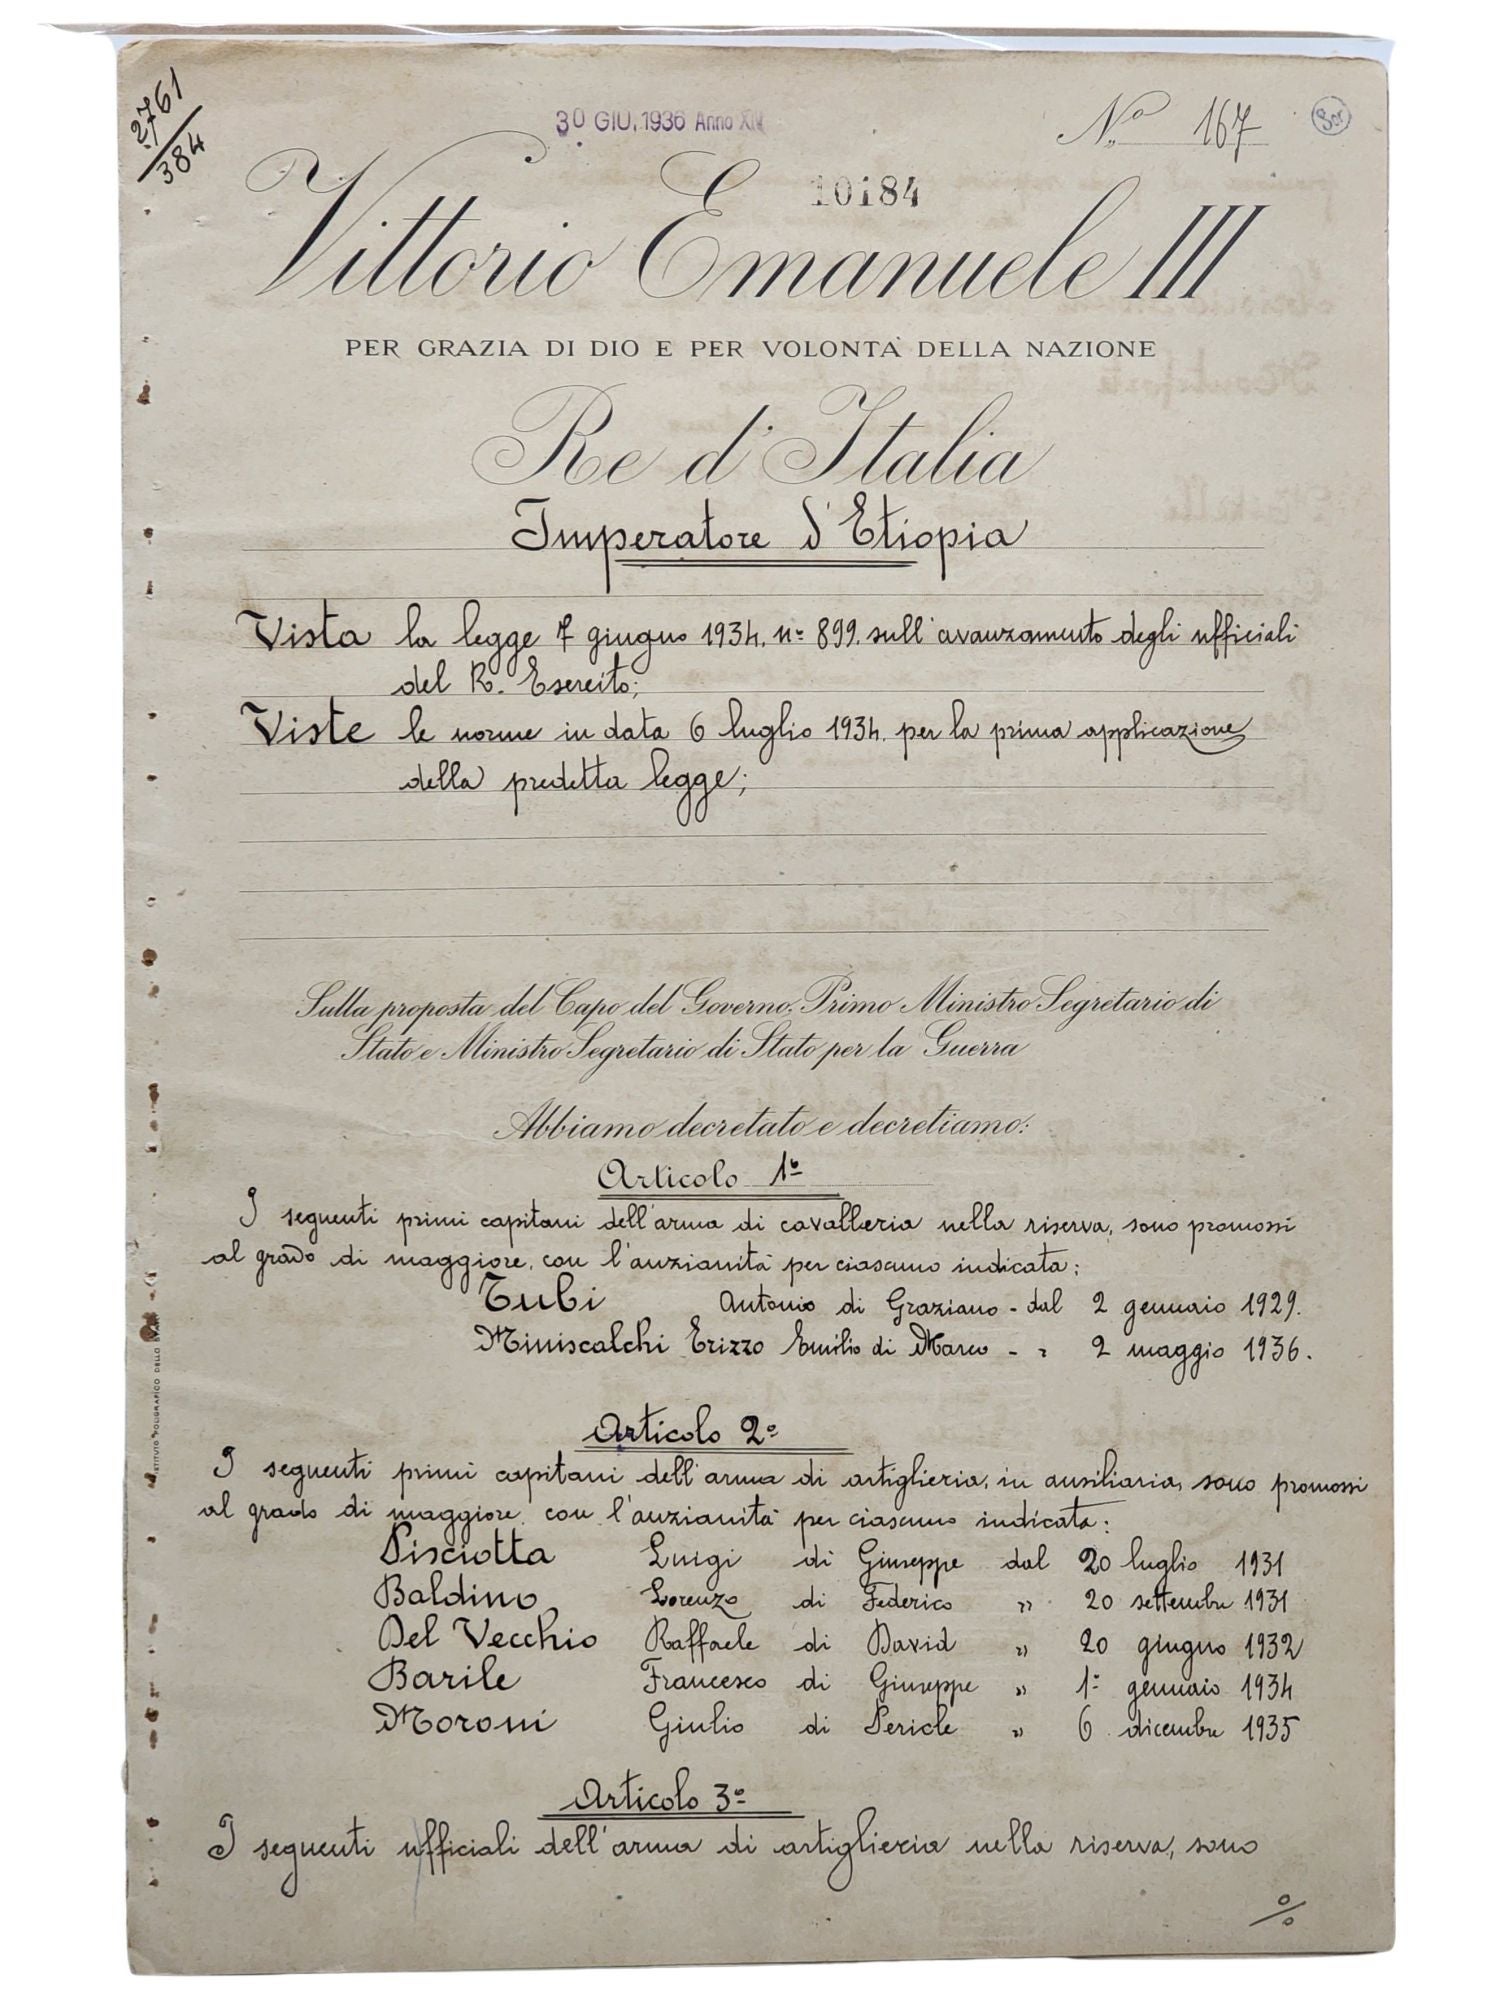 2761
384
30 GIU. 1936 Anno XIV
Nº 167
10184
Vittorio Emanuele III
PER GRAZIA DI DIO E PER VOLONTÀ DELLA NAZIONE
Re d'Italia
Imperatore d'Etiopia
Vista la legge 7 giugno 1934. nº 899. sull'avanzamento degli ufficiali
del R. Esercito;
Viste le norme in data 6 luglio 1934. per la prima applicazione
della predetta legge;
Sulla proposta del Capo del Governo, Primo Ministro Segretario di
Stato e Ministro Segretario di Stato per la Guerra
Abbiamo decretato e decretiamo:
Articolo 1º
I seguenti primi capitani dell'arma di cavalleria nella riserva, sono promossi
al grado di maggiore, con l'anzianità per ciascuno indicata:
Tubi Antonio di Graziano - dal 2 gennaio 1929.
Miniscalchi Erizzo Emilio di Marco - " 2 maggio 1936.
Articolo 2º
I seguenti primi capitani dell'arma di artiglieria, in ausiliaria, sono promossi
al grado di maggiore, con l'anzianità per ciascuno indicata:
Pisciotta Luigi di Giuseppe dal 20 luglio 1931
Baldino Lorenzo di Federico " 20 settembre 1931
Del Vecchio Raffaele di David " 20 giugno 1932
Barile Francesco di Giuseppe " 1º gennaio 1934
Moroni Giulio di Pericle " 6 dicembre 1935
Articolo 3º
I seguenti ufficiali dell'arma di artiglieria nella riserva, sono
%
ISTITUTO POLIGRAFICO DELLO